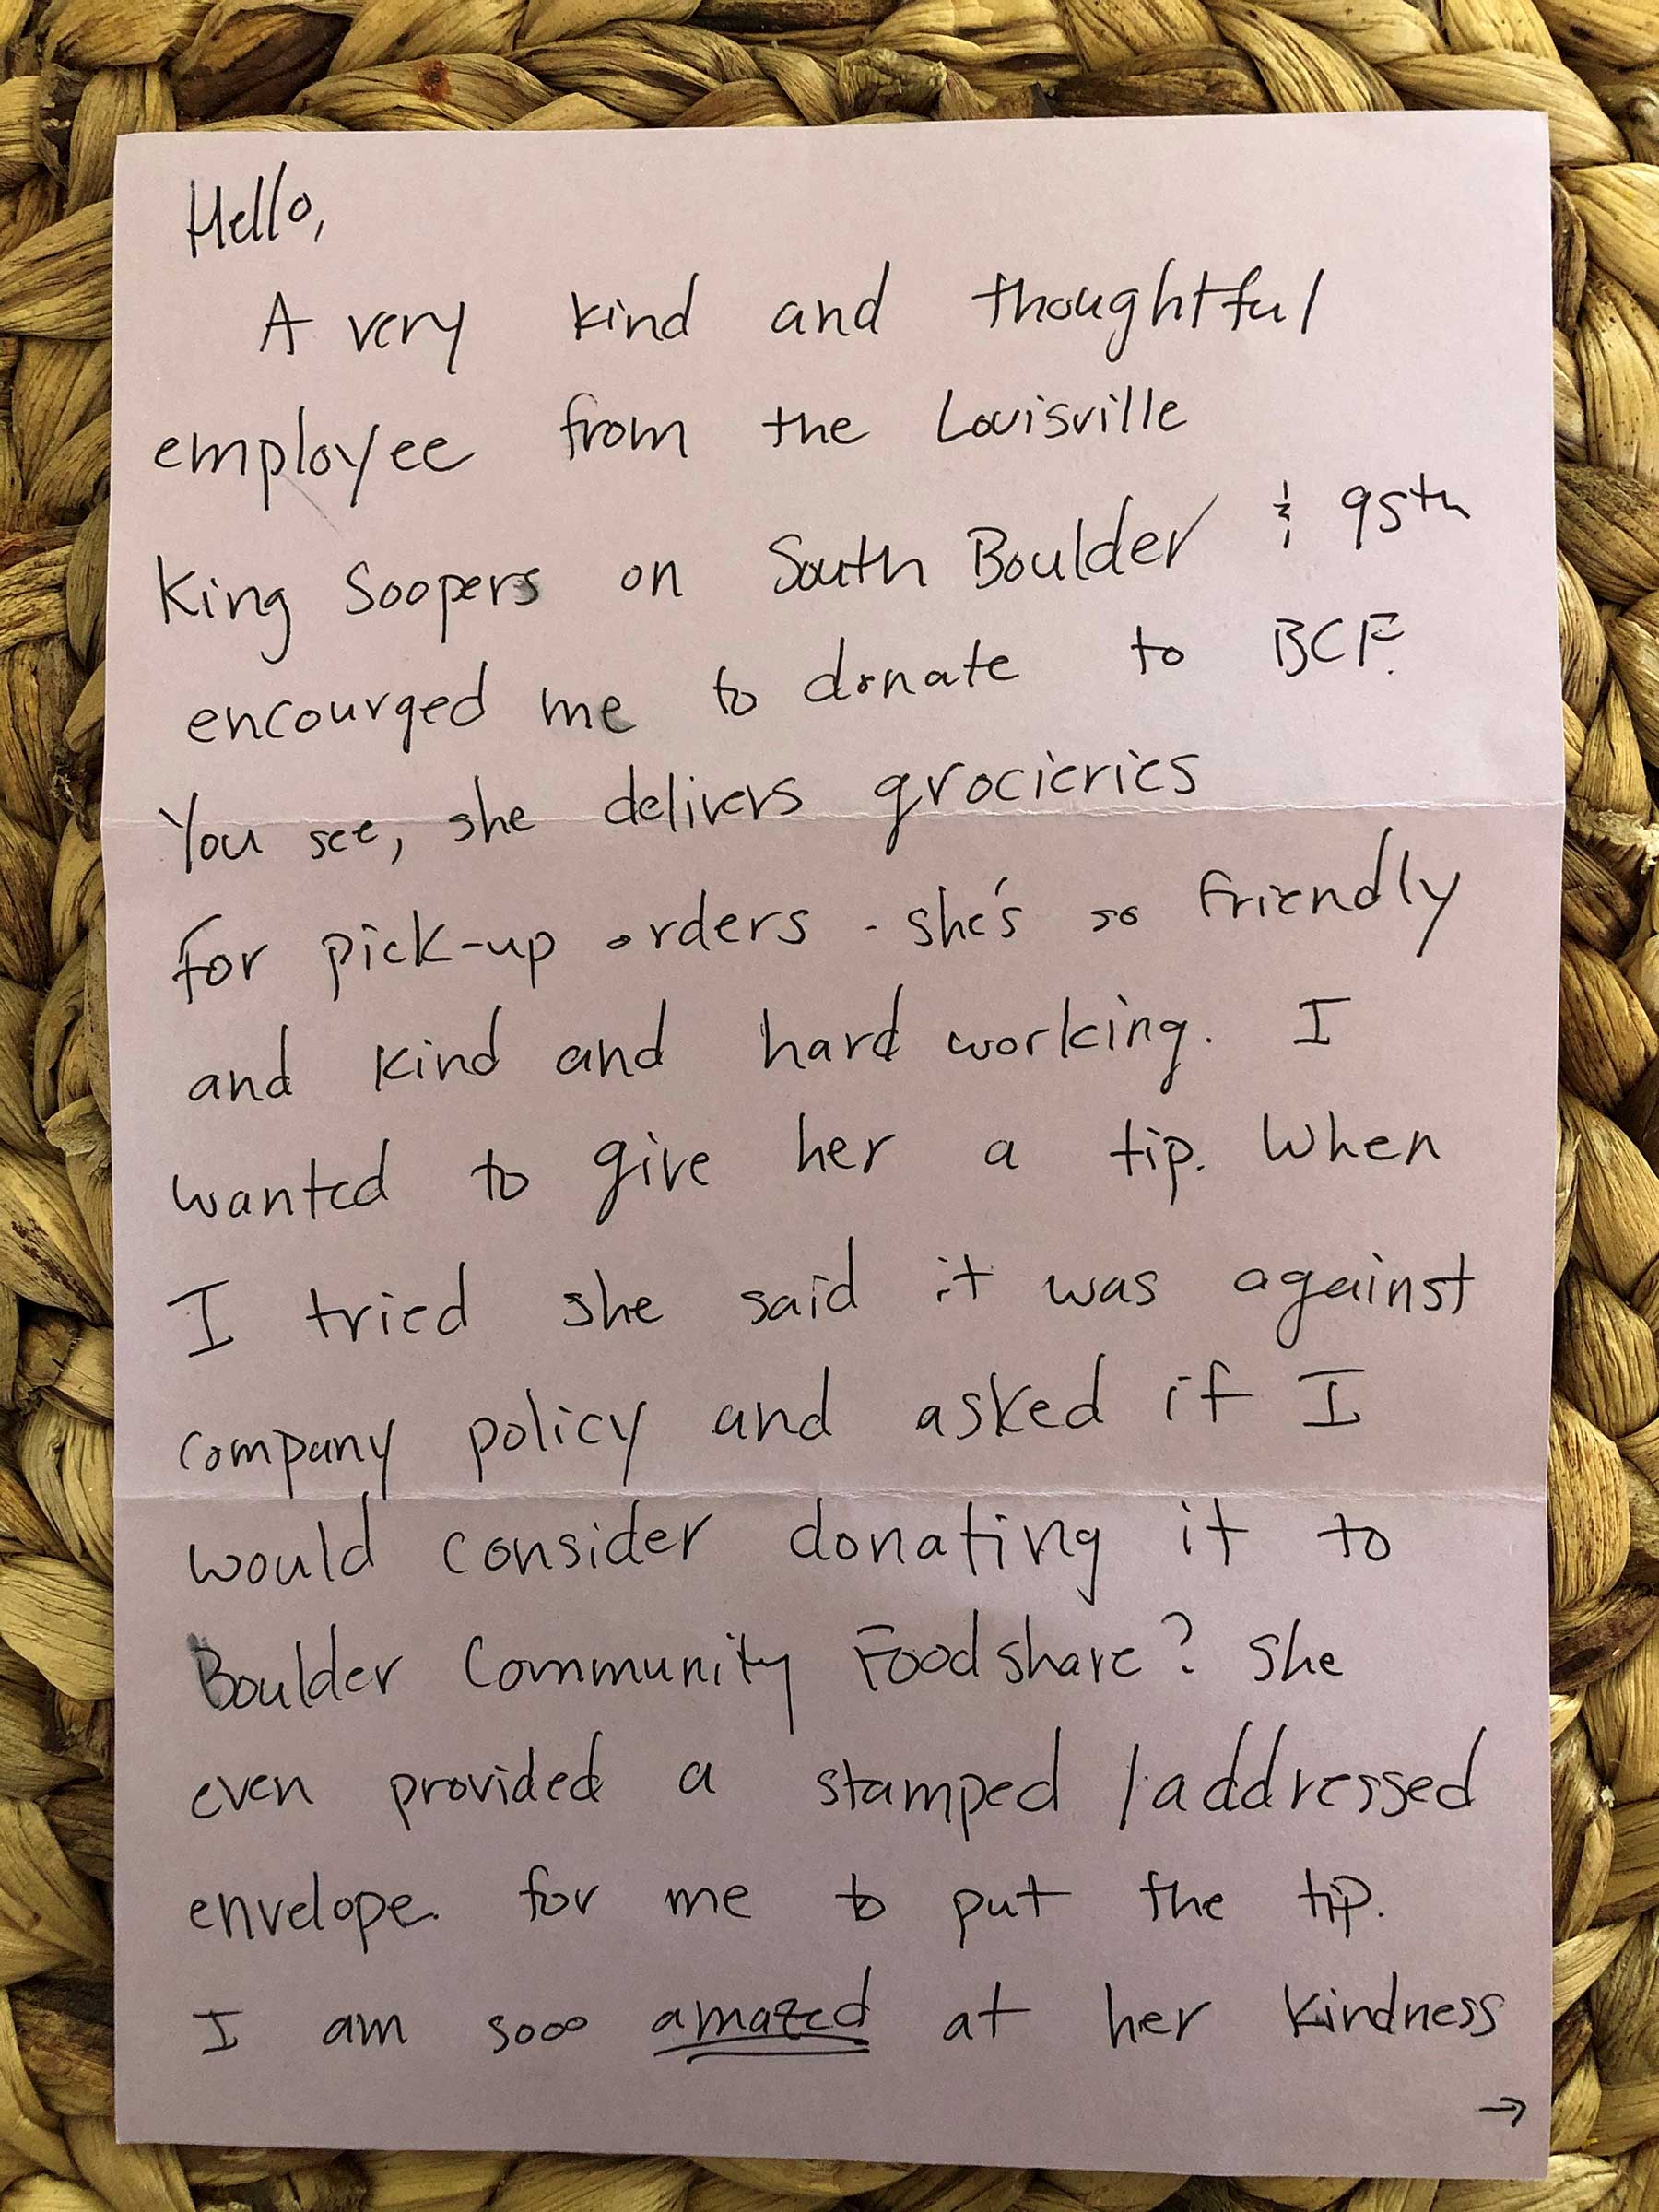 Hello,
A very kind and thoughtful
employee from the Louisville
King Soopers on South Boulder & 95th
encourged me to donate to BCF.
You see, she delivers grocieries
for pick-up orders - she's so friendly
and kind and hard working. I
wanted to give her a tip. When
I tried she said it was against
company policy and asked if I
would consider donating it to
Boulder Community Foodshare? She
even provided a stamped /addressed
envelope for me to put the tip.
I am sooo amazed at her kindness
→